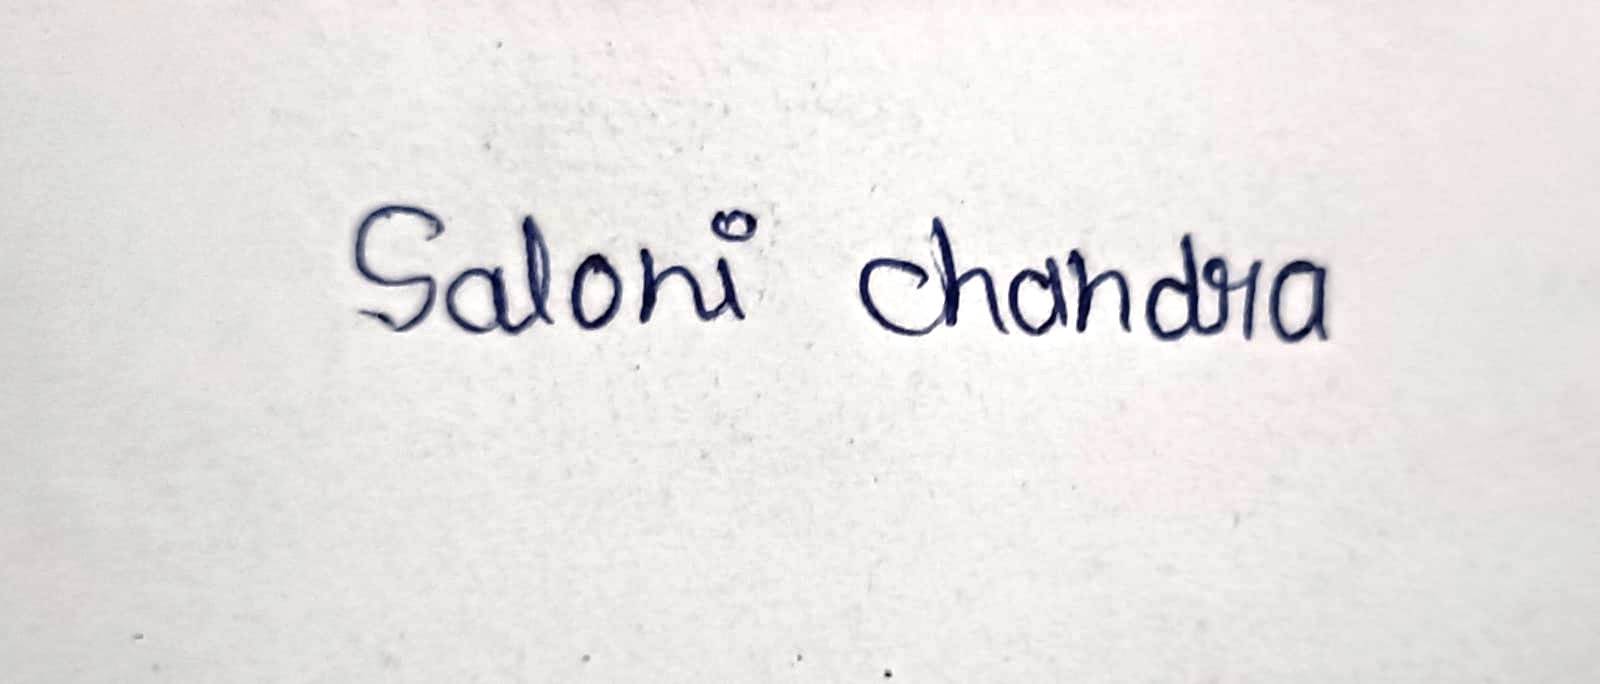 Saloni chandra